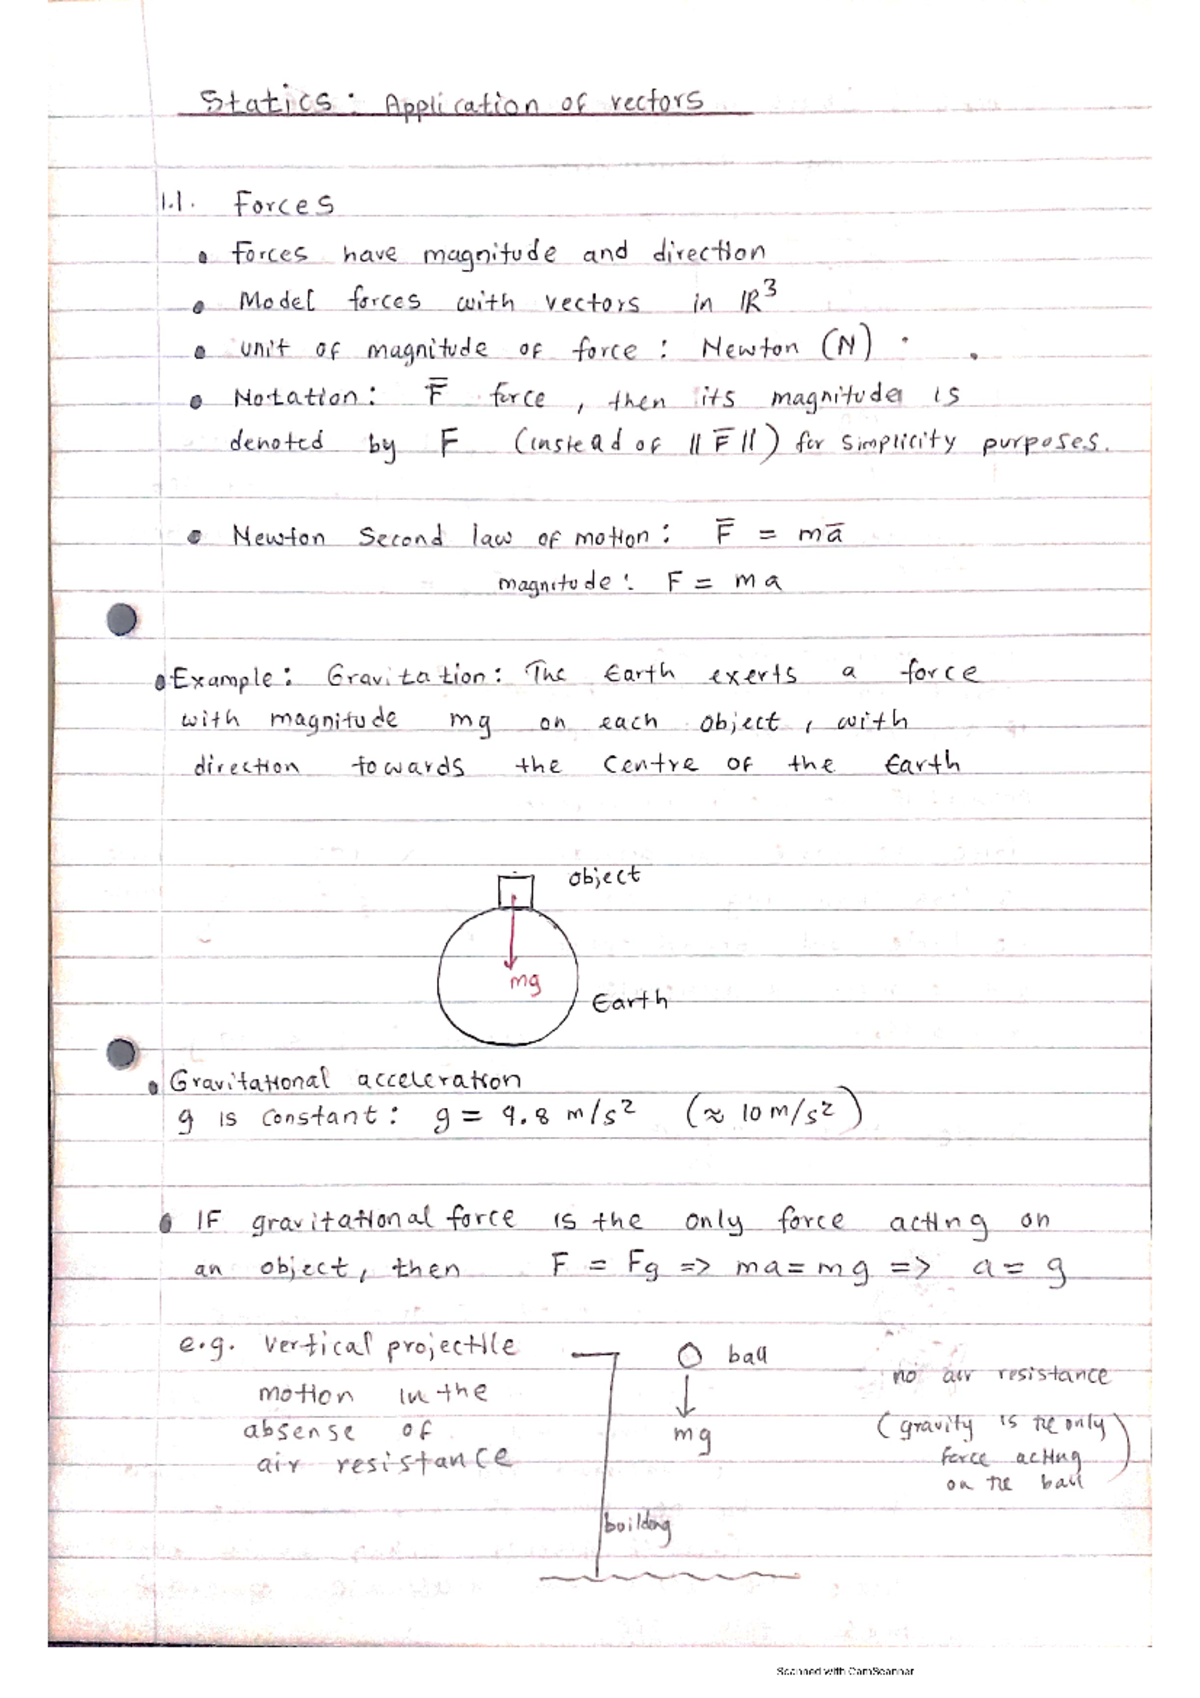 Statics: Application of vectors
1.1. Forces
• Forces have magnitude and direction
• Model forces with vectors in ℝ³
• unit of magnitude of force: Newton (N)
• Notation: F̅ force, then its magnitude is
denoted by F (instead of ||F̅||) for simplicity purposes.
• Newton Second law of motion: F̅ = ma̅
magnitude: F = ma
• Example: Gravitation: The Earth exerts a force
with magnitude mg on each object, with
direction towards the Centre of the Earth
object
mg
Earth
• Gravitational acceleration
g is constant: g = 9.8 m/s² (≈ 10 m/s²)
• IF gravitational force is the only force acting on
an object, then F = Fg => ma = mg => a = g
e.g. vertical projectile
motion in the
absense of
air resistance
ball
mg
building
no air resistance
(gravity is the only
force acting
on the ball)
Scanned with CamScanner